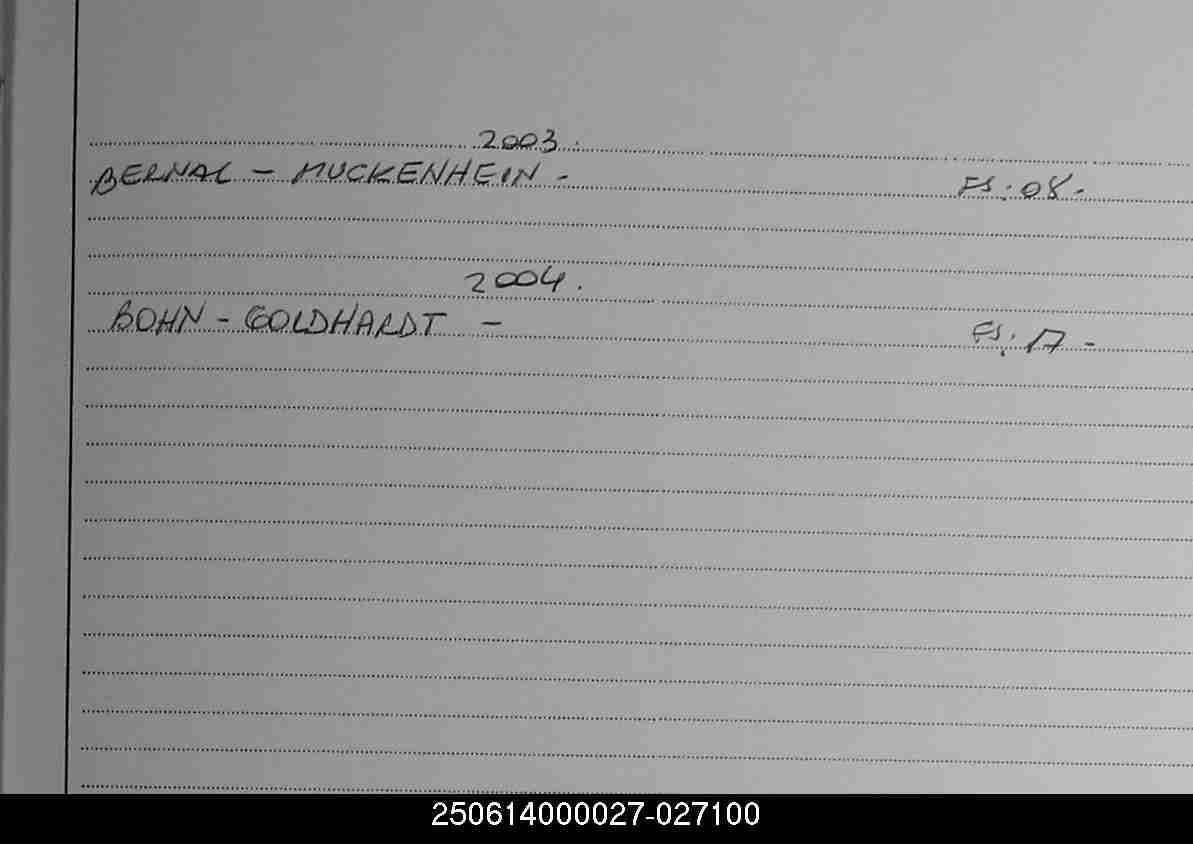 2003.
BERNAL - MUCKENHEIN - FS: 08.-
2004.
BOHN - GOLDHARDT - FS: 17 -
250614000027-027100